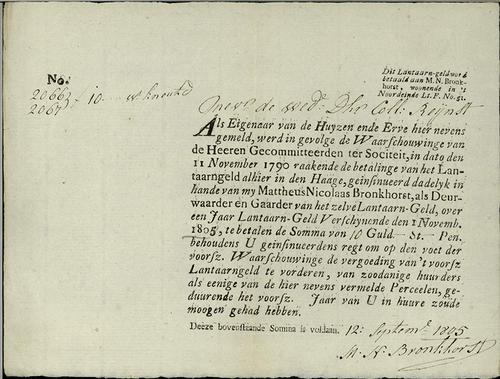 Dit Lantaarn-geld word
betaald aan M.N. Bronk-
horst, woonende in 't
Noordeinde Lt. F. No. 51.
No.
20663
2067
10.
Mevr. de wed. Dhr Coll: Reijnst
Als Eigenaar van de Huyzen ende Erve hier nevens
gemeld, werd in gevolge de Waarschouwinge van
de Heeren Gecommitteerden ter Sociteit, in dato den
11 November 1790 raakende de betalinge van het Lan-
taarngeld alhier in den Haage, geinsinueerd dadelyk in
hande van my Mattheus Nicolaas Bronkhorst, als Deur-
waarder en Gaarder van het zelve Lantaarn-Geld, over
een Jaar Lantaarn-Geld Verschynende den 1 Novemb.
1805, te betalen de Somma von 10 Guld. — St. — Pen.
behoudens U geinsinueerdens regt om op den voet der
voorsz. Waarschouwinge de vergoeding van 't voorsz
Lantaarngeld te vorderen, van zoodanige huurders
als eenige van de hier nevens vermelde Perceelen, ge-
duurende het voorsz. Jaar van U in huure zoude
moogen gehad hebben.
Deeze bovenstaande Somma is voldaan. 12: Septemr 1805
M. N. Bronkhorst